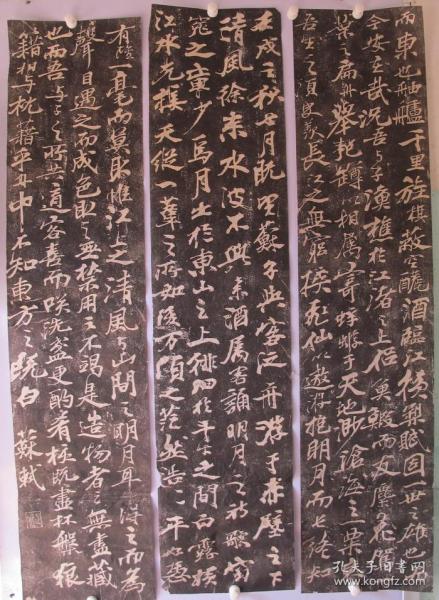 而東也舳艫千里旌旗蔽空釃酒臨江橫槊賦固一世之雄也
今安在哉況吾與子漁樵於江渚之上侶魚蝦而友麋鹿駕
葉之扁舟舉匏樽以相屬寄蜉蝣于天地渺滄海之一粟
吾生之須臾羨長江之無窮挾飛仙以遨遊抱明月而長終知
壬戌之秋七月既望蘇子與客泛舟游于赤壁之下
清風徐來水波不興舉酒属客誦明月之詩歌窈
窕之章少焉月出於東山之上徘徊於斗牛之間白露橫
江水光接天縱一葦之所如凌万頃之茫然浩々乎如憑
有雖一毫而莫取惟江上之清風與山間之明月耳得之而為
聲目遇之而成色取之無禁用之不竭是造物者之無盡藏
也而吾與子之所共適客喜而咲洗盞更酌肴核既盡杯盤狼
籍相与枕藉乎舟中不知東方之既白 蘇軾
孔夫子旧书网
www.kongfz.com